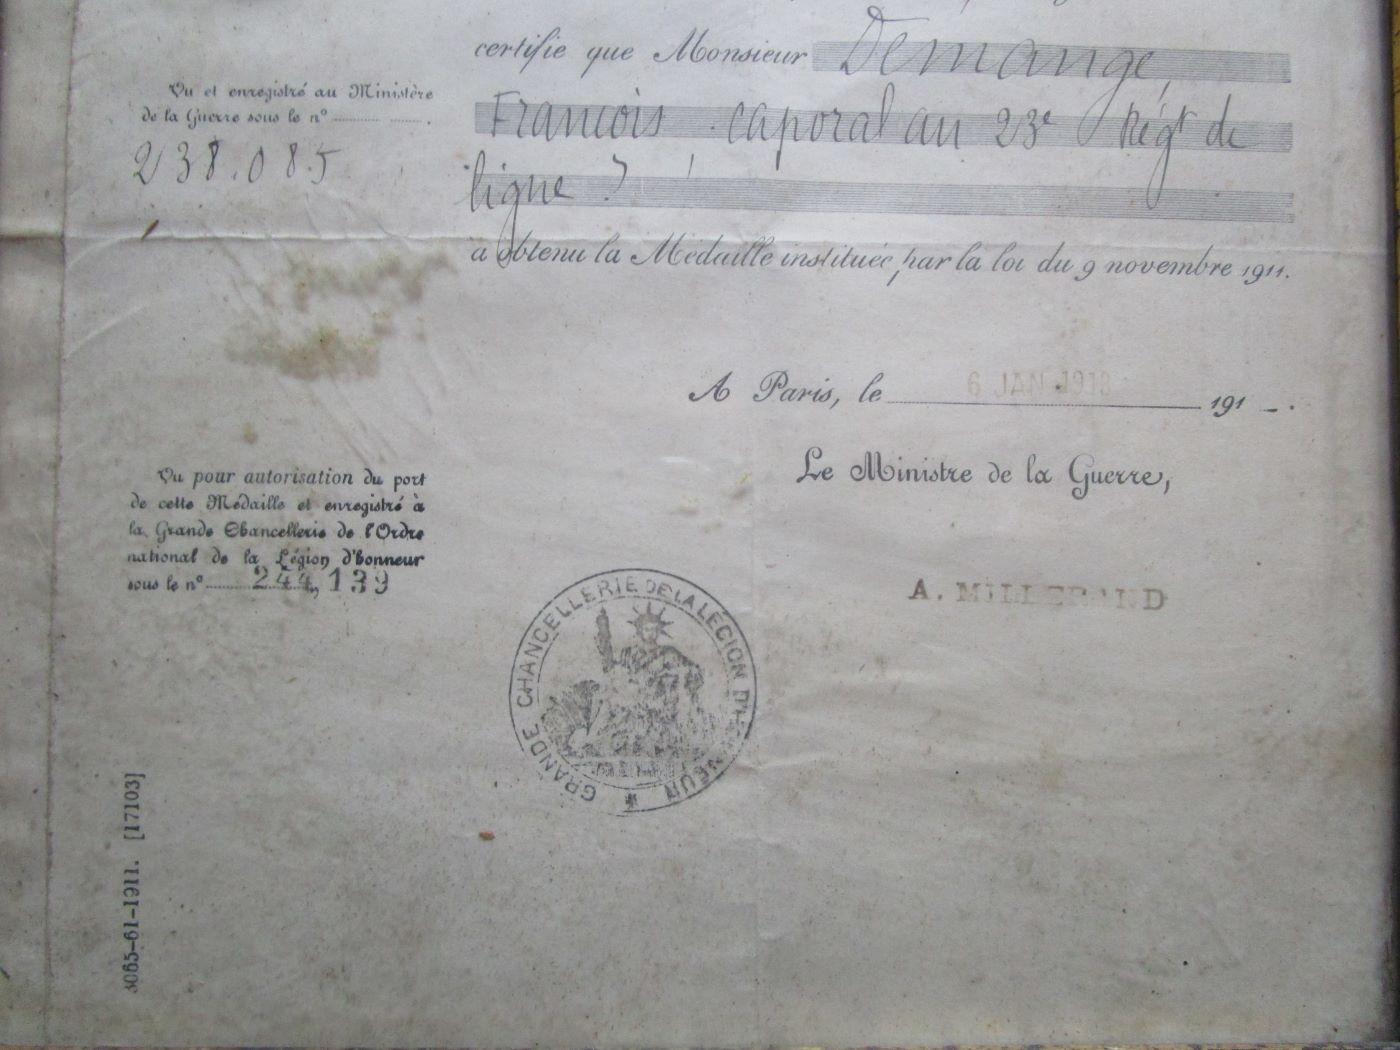 certifie que Monsieur Demange,
François caporal au 23e Régt de
ligne
a obtenu la Médaille instituée par la loi du 9 novembre 1911.
Vu et enregistré au Ministère
de la Guerre sous le n° .
238.085
A Paris, le 6 JAN 1913 191 .
Le Ministre de la Guerre,
A. MILLERAND
Vu pour autorisation du port
de cette Médaille et enregistré à
la Grande Chancellerie de l'Ordre
national de la Légion d'honneur
sous le n° 244,139
GRANDE CHANCELLERIE DE LA LEGION D'HONNEUR *
3065-61-1911. [17103]